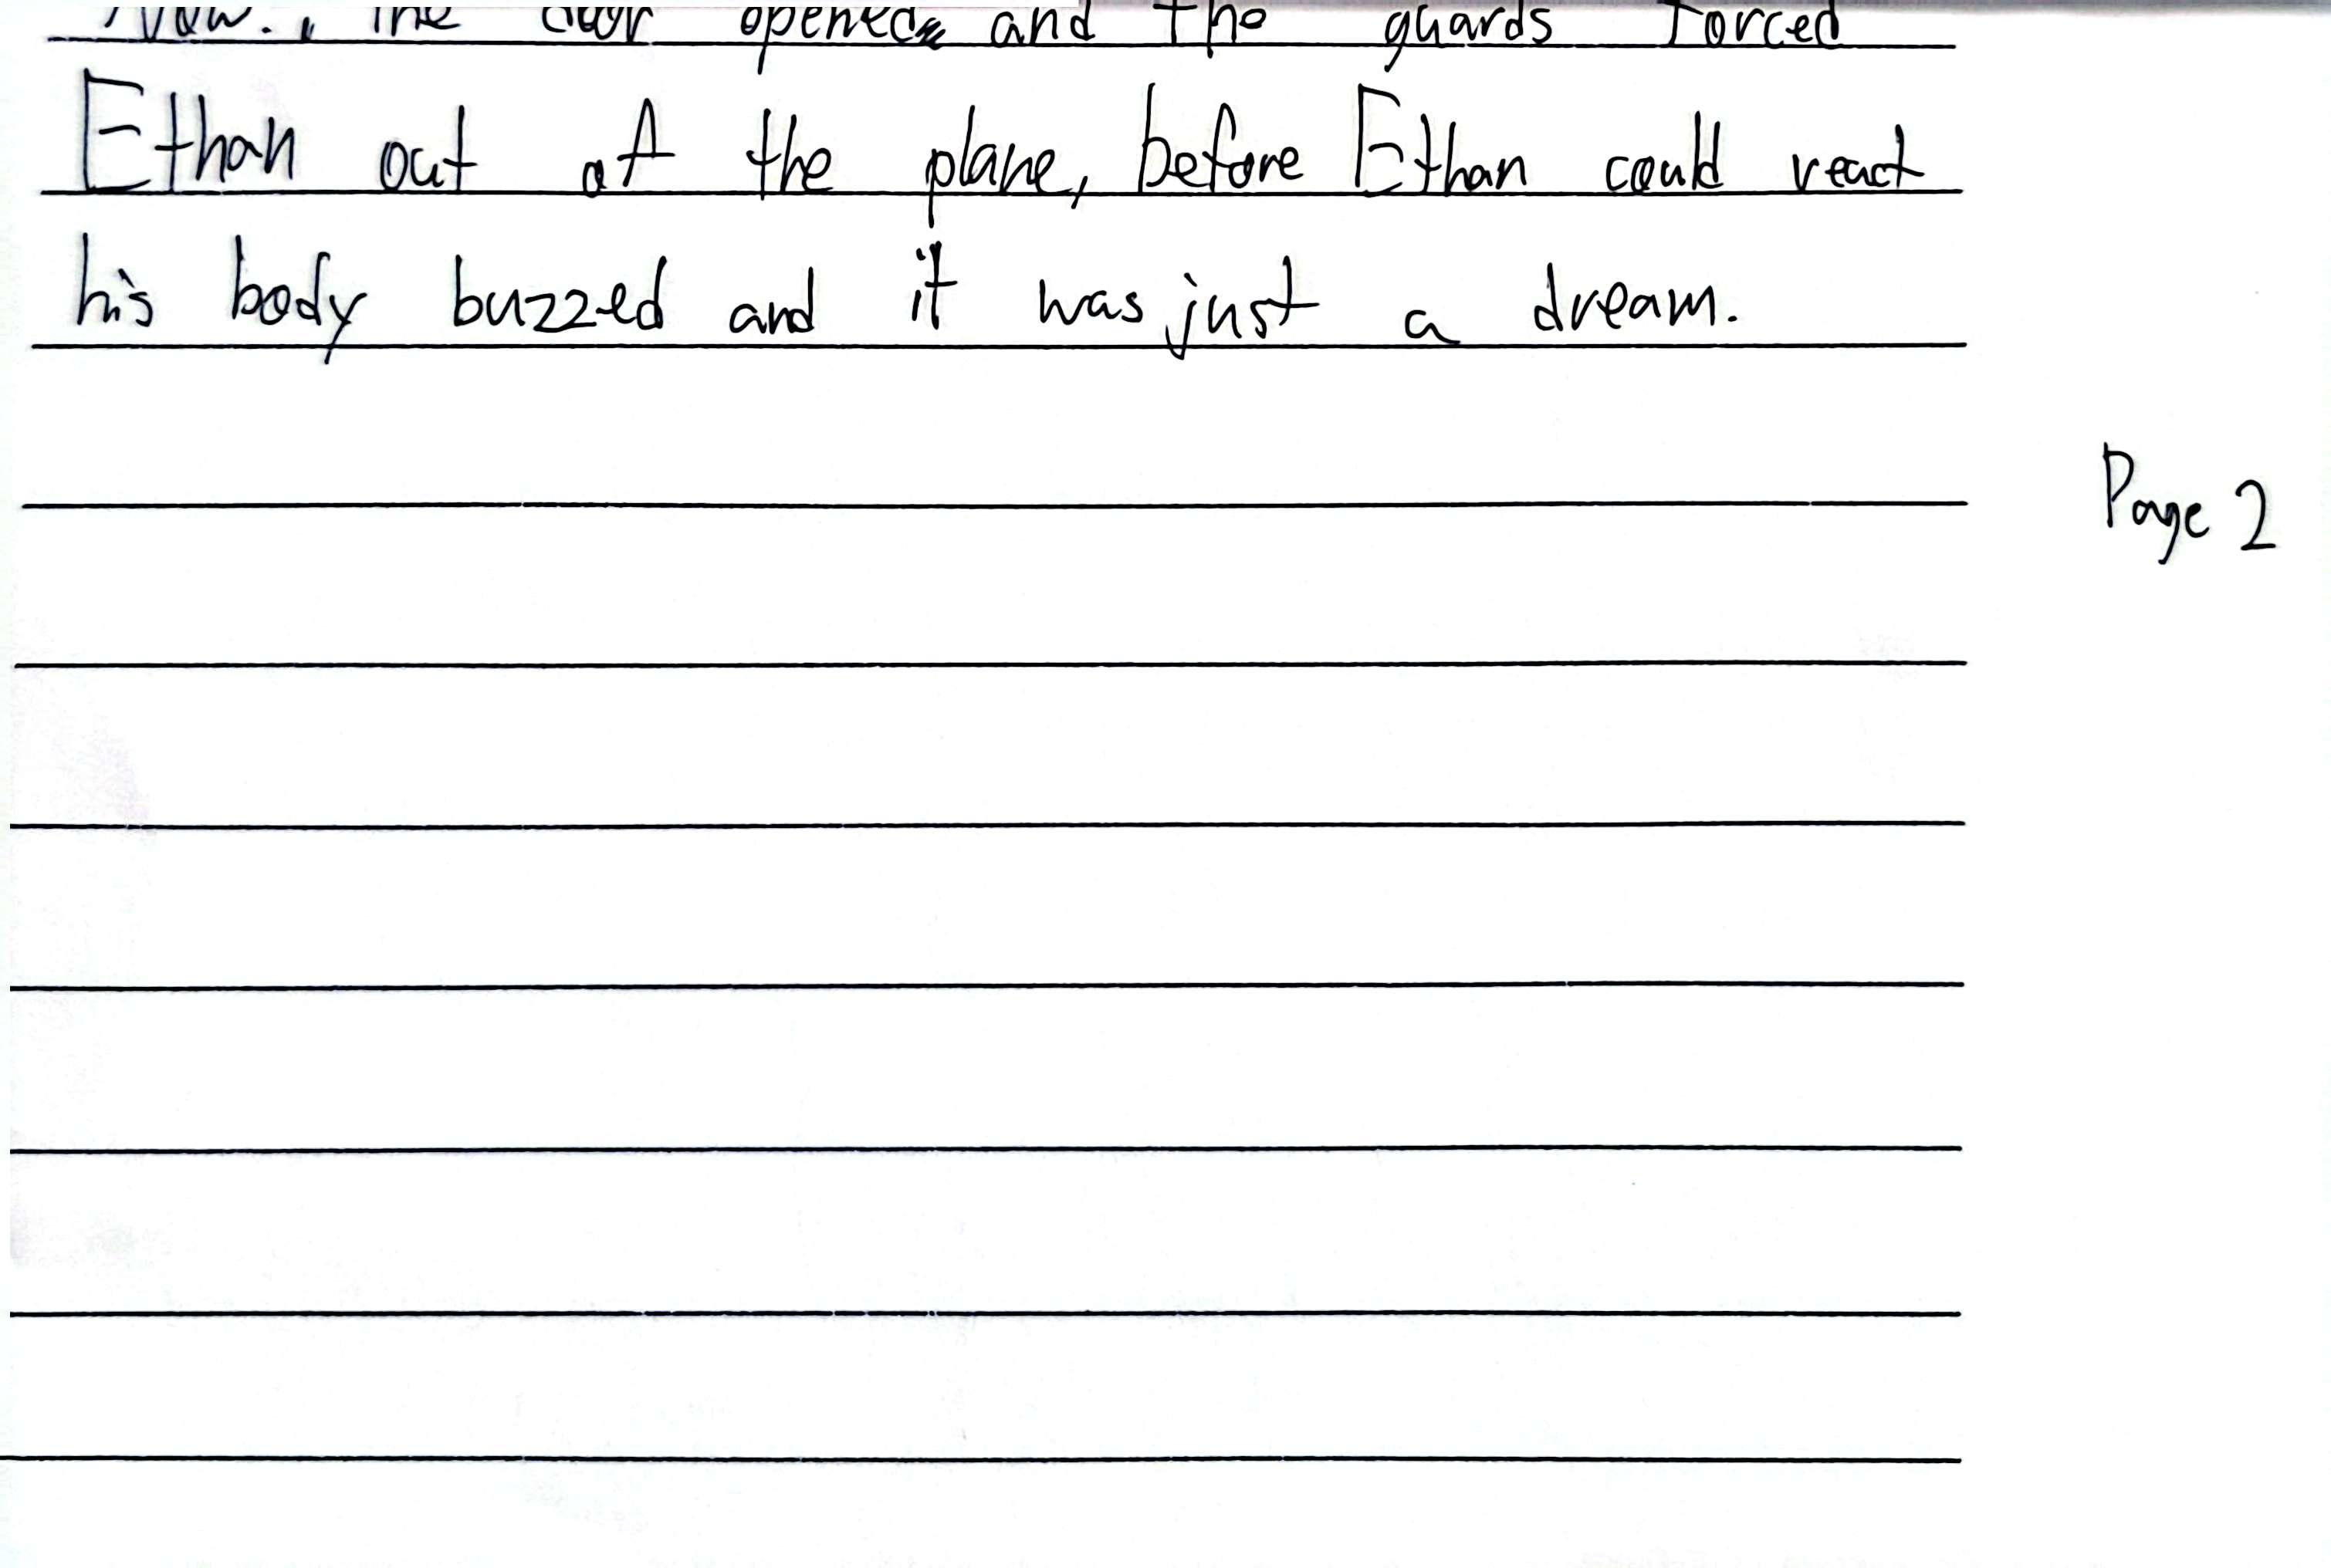 Now., The door opened and the guards forced
Ethan out of the plane, before Ethan could react
his body buzzed and it was just a dream.
Page 2